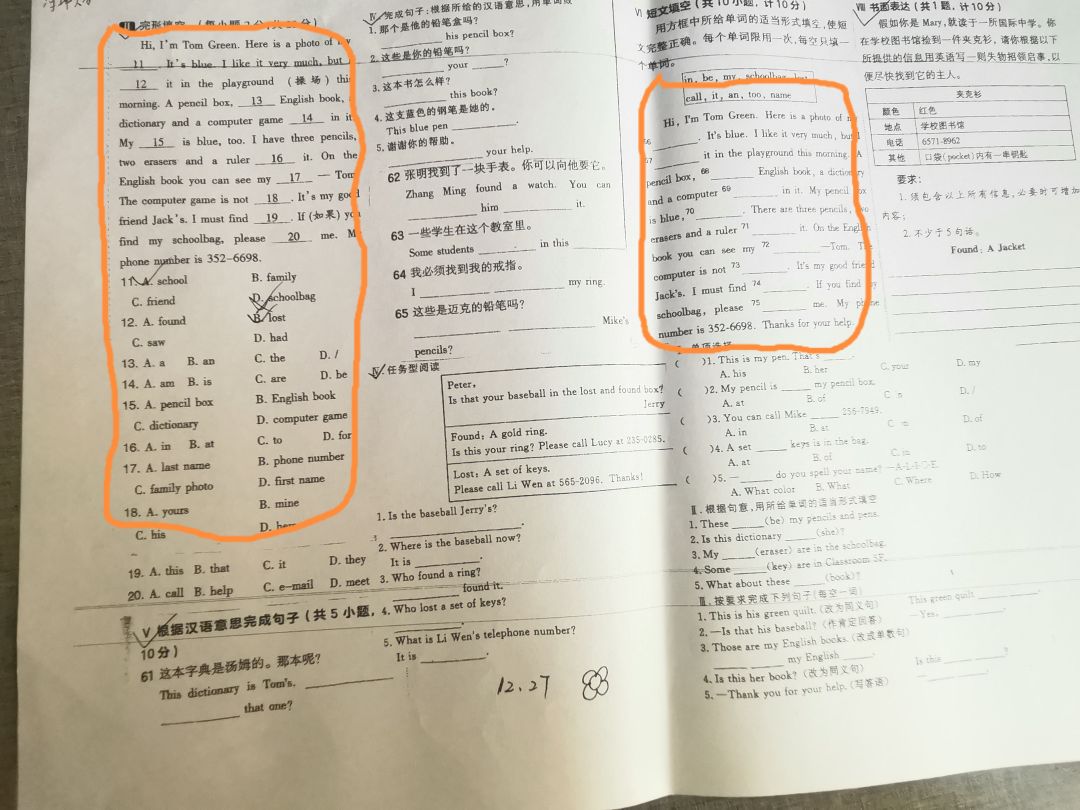 Ⅲ 完形填空
Hi, I'm Tom Green. Here is a photo of my
11 . It's blue. I like it very much, but
12 it in the playground (操场) this
morning. A pencil box, 13 English book,
dictionary and a computer game 14 in it.
My 15 is blue, too. I have three pencils,
two erasers and a ruler 16 it. On the
English book you can see my 17 — Tom.
The computer game is not 18 . It's my good
friend Jack's. I must find 19 . If (如果) you
find my schoolbag, please 20 me. My
phone number is 352-6698.
11. A. school B. family
C. friend D. schoolbag
12. A. found B. lost
C. saw D. had
13. A. a B. an C. the D. /
14. A. am B. is C. are D. be
15. A. pencil box B. English book
C. dictionary D. computer game
16. A. in B. at C. to D. for
17. A. last name B. phone number
C. family photo D. first name
18. A. yours B. mine
C. his D. hers
19. A. this B. that C. it D. they
20. A. call B. help C. e-mail D. meet
Ⅴ 根据汉语意思完成句子(共5小题,
10分)
61 这本字典是汤姆的。那本呢?
This dictionary is Tom's. ________
________ that one?
Ⅳ 完成句子:根据所给的汉语意思,用单词
1. 那个是他的铅笔盒吗?
________ his pencil box?
2. 这些是你的铅笔吗?
________ your ______?
3. 这本书怎么样?
________ this book?
4. 这支蓝色的钢笔是她的。
This blue pen ________.
5. 谢谢你的帮助。
________ your help.
62 张明找到了一块手表。你可以向他要它。
Zhang Ming found a watch. You can
________ him ________ it.
63 一些学生在这个教室里。
Some students ________ in this ________.
64 我必须找到我的戒指。
I ________ ________ my ring.
65 这些是迈克的铅笔吗?
________ ________ Mike's
pencils?
Ⅳ 任务型阅读
Peter,
Is that your baseball in the lost and found box?
Jerry
Found: A gold ring.
Is this your ring? Please call Lucy at 235-0285.
Lost: A set of keys.
Please call Li Wen at 565-2096. Thanks!
1. Is the baseball Jerry's?
________.
2. Where is the baseball now?
It is ________.
3. Who found a ring?
________ found it.
4. Who lost a set of keys?
________.
5. What is Li Wen's telephone number?
It is ________.
12.27
Ⅵ 短文填空(共10小题,计10分)
用方框中所给单词的适当形式填空,使短
文完整正确。每个单词限用一次,每空只填一
个单词。
in, be, my, schoolbag, lost
call, it, an, too, name
Hi, I'm Tom Green. Here is a photo of m
66 ________. It's blue. I like it very much, but I
67 ________ it in the playground this morning. A
pencil box, 68 ________ English book, a dictionary
and a computer 69 ________ in it. My pencil box
is blue, 70 ________. There are three pencils, two
erasers and a ruler 71 ________ it. On the English
book you can see my 72 ________—Tom. The
computer is not 73 ________. It's my good friend
Jack's. I must find 74 ________. If you find my
schoolbag, please 75 ________ me. My phone
number is 352-6698. Thanks for your help.
单项选择
( )1. This is my pen. That's ______.
A. his B. her C. your D. my
( )2. My pencil is ______ my pencil box.
A. at B. of C. in D. /
( )3. You can call Mike ______ 256-7949.
A. in B. at D. of
( )4. A set ______ keys is in the bag.
A. at B. of C. in D. to
( )5. — ______ do you spell your name? —A-L-I-C-E.
A. What color B. What C. Where D. How
Ⅱ. 根据句意,用所给单词的适当形式填空
1. These ______(be) my pencils and pens.
2. Is this dictionary ______(she)?
3. My ______(eraser) are in the schoolbag.
4. Some ______(key) are in Classroom 5F.
5. What about these ______(book)?
Ⅲ. 按要求完成下列句子(每空一词)
1. This is his green quilt.(改为同义句) This green quilt ________.
2. —Is that his baseball?(作肯定回答) —Yes, ________.
3. Those are my English books.(改成单数句)
________ my English ______.
4. Is this her book?(改为同义句) Is this ________?
5. —Thank you for your help.(写答语) —________.
Ⅷ 书面表达(共1题,计10分)
假如你是 Mary,就读于一所国际中学。你
在学校图书馆捡到一件夹克衫,请你根据以下
所提供的信息用英语写一则失物招领启事,以
便尽快找到它的主人。
夹克衫
颜色 红色
地点 学校图书馆
电话 6571-8962
其他 口袋(pocket)内有一串钥匙
要求:
1. 须包含以上所有信息,必要时可增加
内容;
2. 不少于5句话。
Found: A Jacket